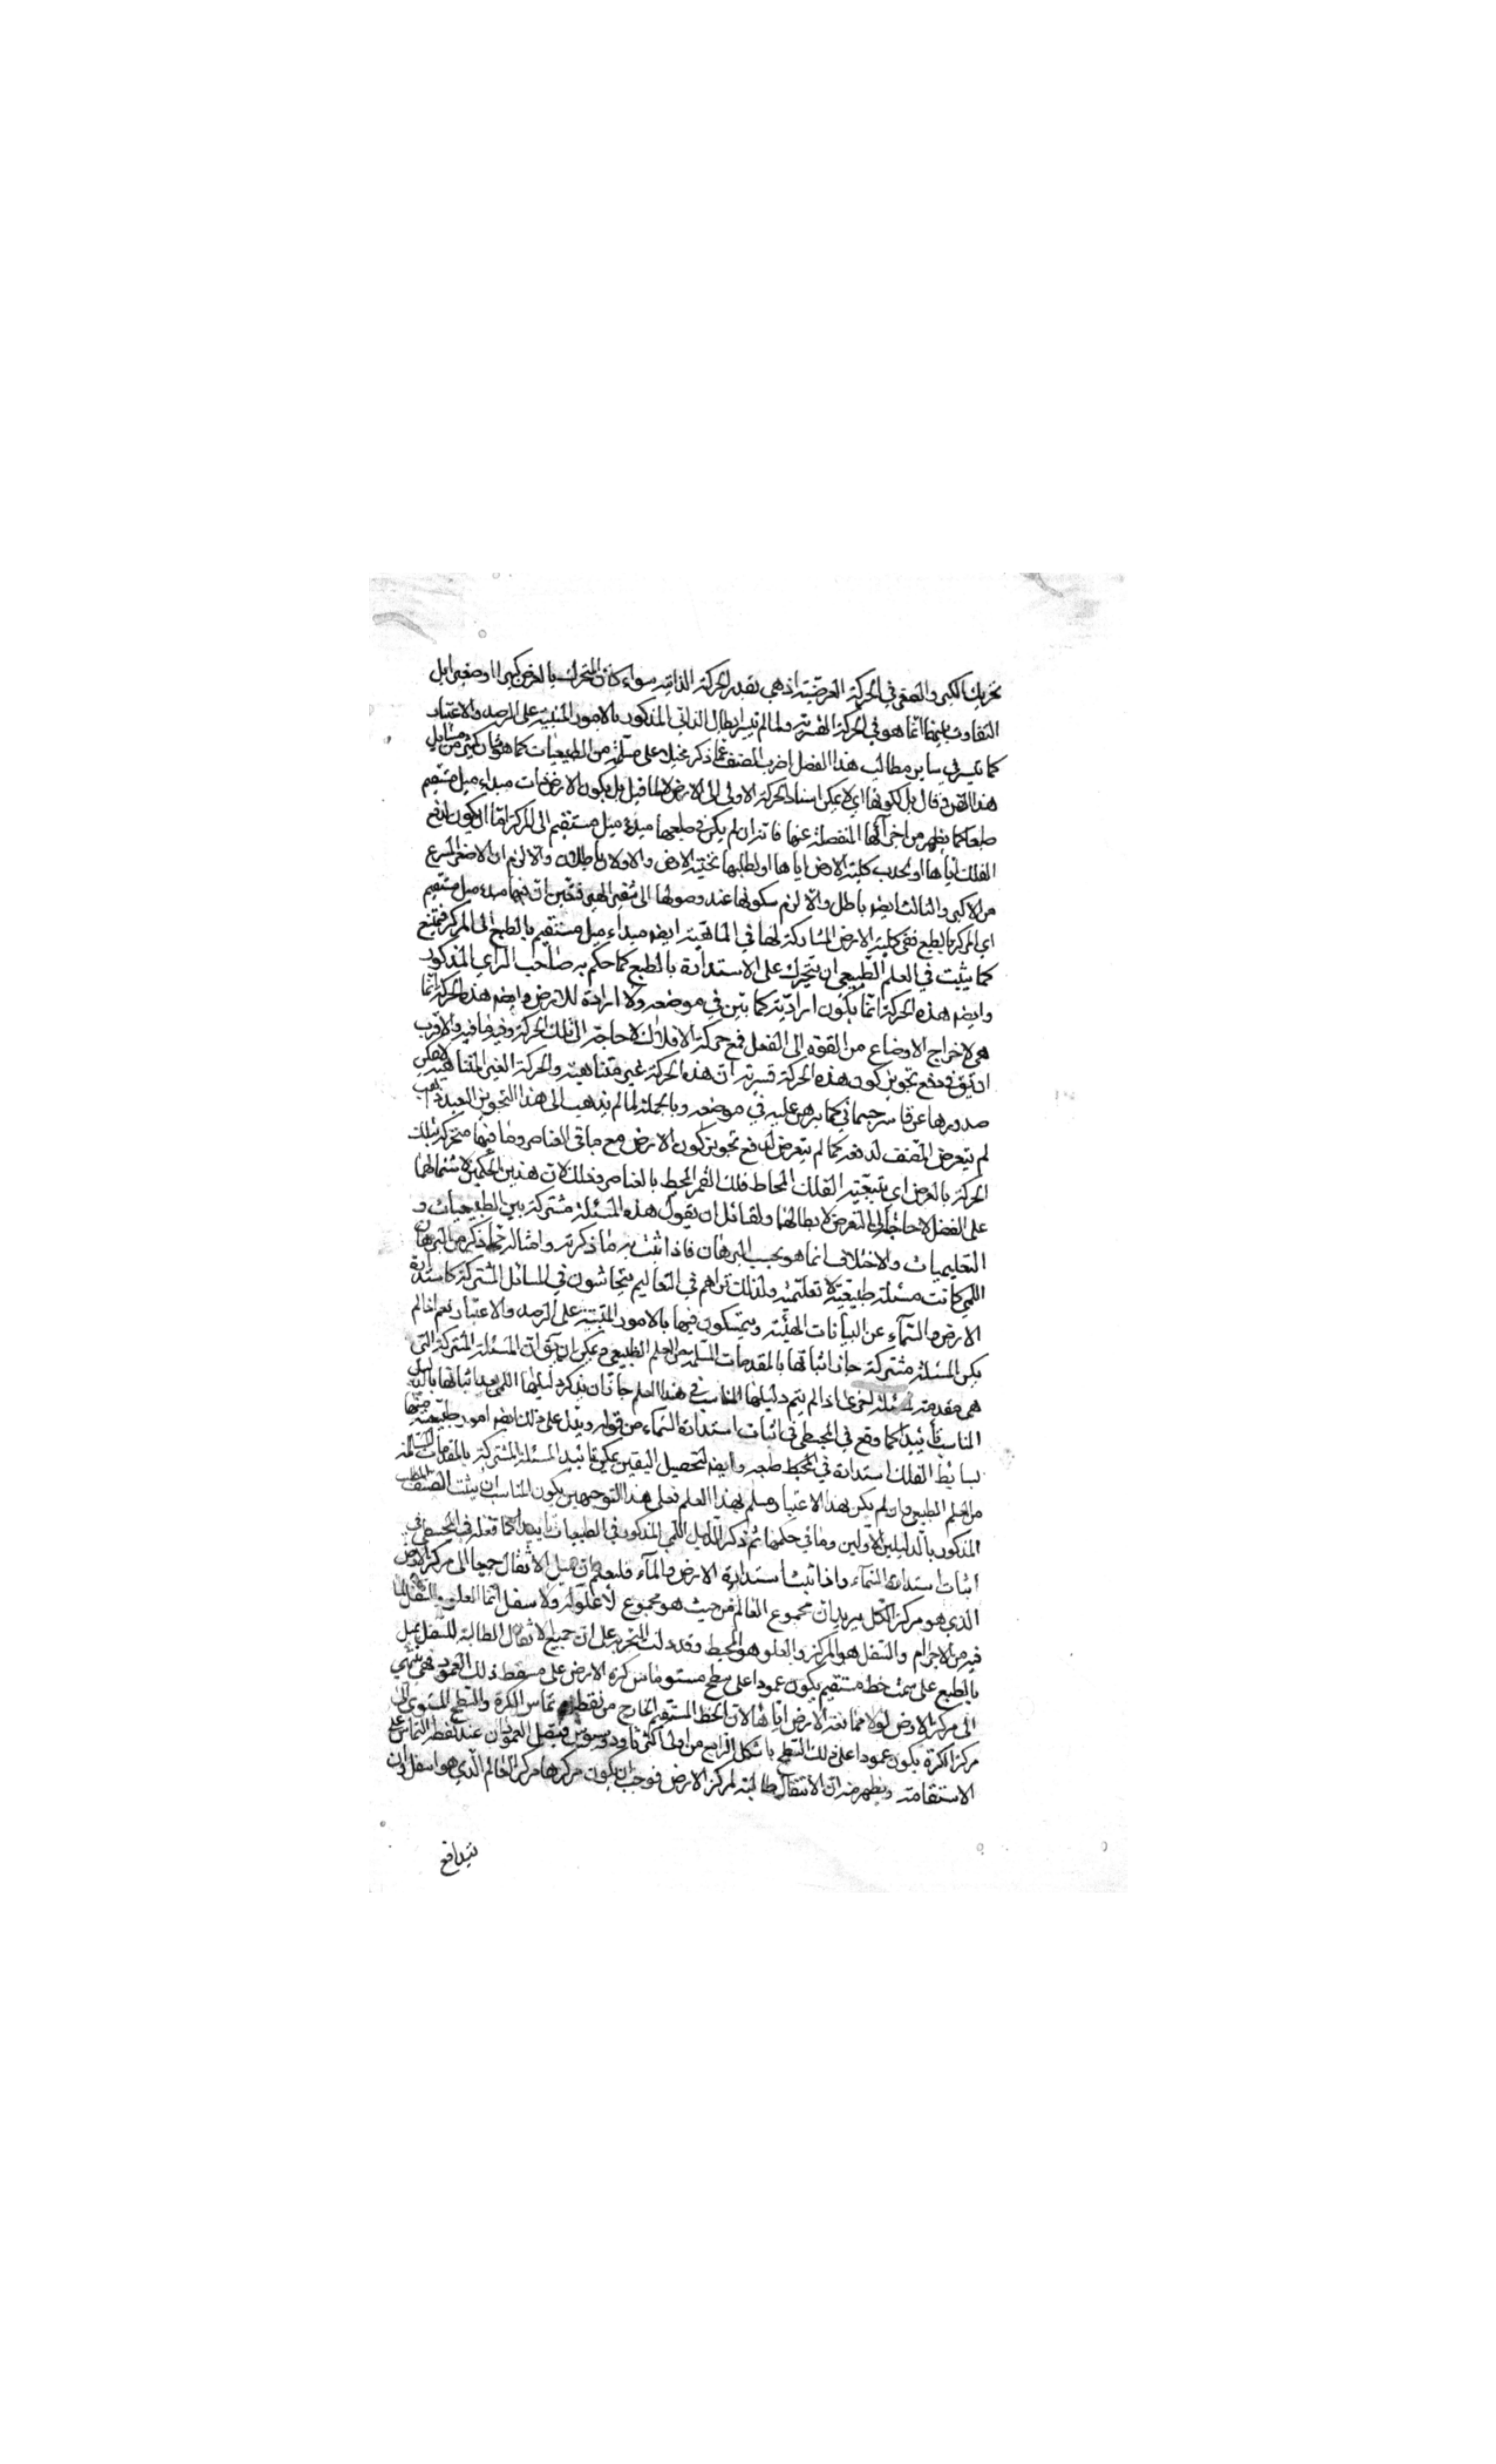 تحريك الكبرى والصغرى في الحركة العرضية اذ هي بقدر الحركة الذاتية سواء كان المتحرك بالعرض كبيرا او صغيرا بل
التفاوت بينهما انما هو في الحركة القسرية ولما لم يتيسر ابطال الذاتي المذكور بالامور المبنية على الرصد والاعتبار
كما تيسر في ساير مطالب هذا الفصل اضرب المصنف عما ذكر على مسئلة من الطبيعيات كما هو شان كثير من مسايل
هذا الفن وقال بل لكونها اي لا يمكن اسناد الحركة الاولى الى الارض لا لما قيل بل لكون الارض ذات مبداء ميل مستقيم
طبعا كما يظهر من اجزائها المنفصلة عنها فانه ان لم يكن في طبعها مبدء ميل مستقيم الى المركز اما ان يكون لدفع
الفلك اياها او لجذب كلية الارض اياها او لطلبها بختية الارض والاولان باطلان والا لزم ان الاصغر اسرع
من الاكبر والثالث ايضا باطل والا لزم سكونها عند وصولها الى شفير البئر فتعين ان فيها مبدء ميل مستقيم
اي المركز بالطبع ففي كلية الارض المشاركة لها في الماهية ايضا مبداء ميل مستقيم بالطبع الى المركز فيمتنع
كما يثبت في العلم الطبيعي ان يتحرك على الاستدارة بالطبع كما حكم به صاحب الراي المذكور
وايضا هذه الحركة انما يكون ارادية كما تبين في موضعه ولا ارادة للارض وايضا هذه الحركة انما
هي لاخراج الاوضاع من القوه الى الفعل فمع حركة الافلاك لا حاجة الى تلك الحركة وفيه ما فيه والاقرب
ان يق في دفع تجويز كون هذه الحركة قسرية ان هذه الحركة غير متناهية والحركة الغير المتناهية لا يمكن
صدورها عن قاسر جسماني كما برهن عليه في موضعه وبالجملة لما لم يذهب الى هذا التجويز البعيد ذاهب
لم يتعرض المصنف لدفعه كما لم يتعرض لدفع تجويز كون الارض مع باقي العناصر وما فيها متحركة بتلك
الحركة بالعرض اي بتبعية الفلك المحاط فلك القمر المحيط بالعناصر وذلك لان هذين الحكمين لاشتمالهما
على الفضل لا حاجة الى التعرض لابطالهما ولقائل ان يقول هذه المسئلة مشتركة بين الطبيعيات و
التعليميات والاختلاف انما هو بحسب البرهان فاذا ثبت به ما ذكرته وامثاله مما ذكر من البرهان
اللمي كانت مسئلة طبيعية لا تعليمية ولذلك تراهم في التعاليم يتحاشون في المسائل المشتركة كاستدارة
الارض والسماء عن البيانات اللمية ويتمسكون فيها بالامور المبتنية على الرصد والاعتبار نعم اذا لم
يكن المسئلة مشتركة جاز اثباتها بالمقدمات المسلمة من العلم الطبيعي ويمكن ان يق ان المسئلة المشتركة التي
هي مقدمة لمسئلة اخرى اذا لم يتم دليلها المناسب في هذا العلم جاز ان يذكر دليلها اللمي بعد اثباتها بالدليل
المناسب تأييدا كما وقع في المجسطي في اثبات استدارة السماء من قوله ويدل على ذلك ايضا امور طبيعية منها
بسايط الفلك استدارة في المحيط طبعه وايضا لتحصيل اليقين يمكن تأييد المسئلة المشتركة بالمقدمات المسلمة
من العلم الطبيعي وان لم يكن بهذا الاعتبار مسلم بهذا العلم فعلى هذا التوجيهين يكون المناسب ان يثبت المصنف المطلب
المذكور بالدليلين الاولين وما في حكمهما ثم ذكر الدليل اللمي المذكور في الطبيعيات تأييدا كما فعله في المجسطي في
اثبات استدارة السماء واذا ثبت استدارة الارض والماء فليعلم ان ميل الاثقال جميعا الى مركز الارض
الذي هو مركز الكل يريد ان مجموع العالم من حيث هو مجموع لا علو له ولا سفل انما العلو والسفل لما
فيه من الاجرام والسفل هو المركز والعلو هو المحيط وقد دلت التجربة على ان جميع الاثقال الطالبة للسفل يميل
بالطبع على سمت خط مستقيم يكون عمودا على سطح مستو يماس كرة الارض على مسقط ذلك العمود فهي ينتهي
الى مركز الارض لولا ممانعة الارض اياها لان الخط المستقيم الخارج من نقطة تماس الكرة والسطح المستوي الى
مركز الكرة يكون عمودا على ذلك السطح باشكل الرابع من اولى اكر ثاودوسيوس فيتصل العمودان عند نقطة التماس على
الاستقامة ويظهر منه ان الاثقال طالبة لمركز الارض فوجب ان يكون مركزها مركز العالم الذي هو اسفل وان